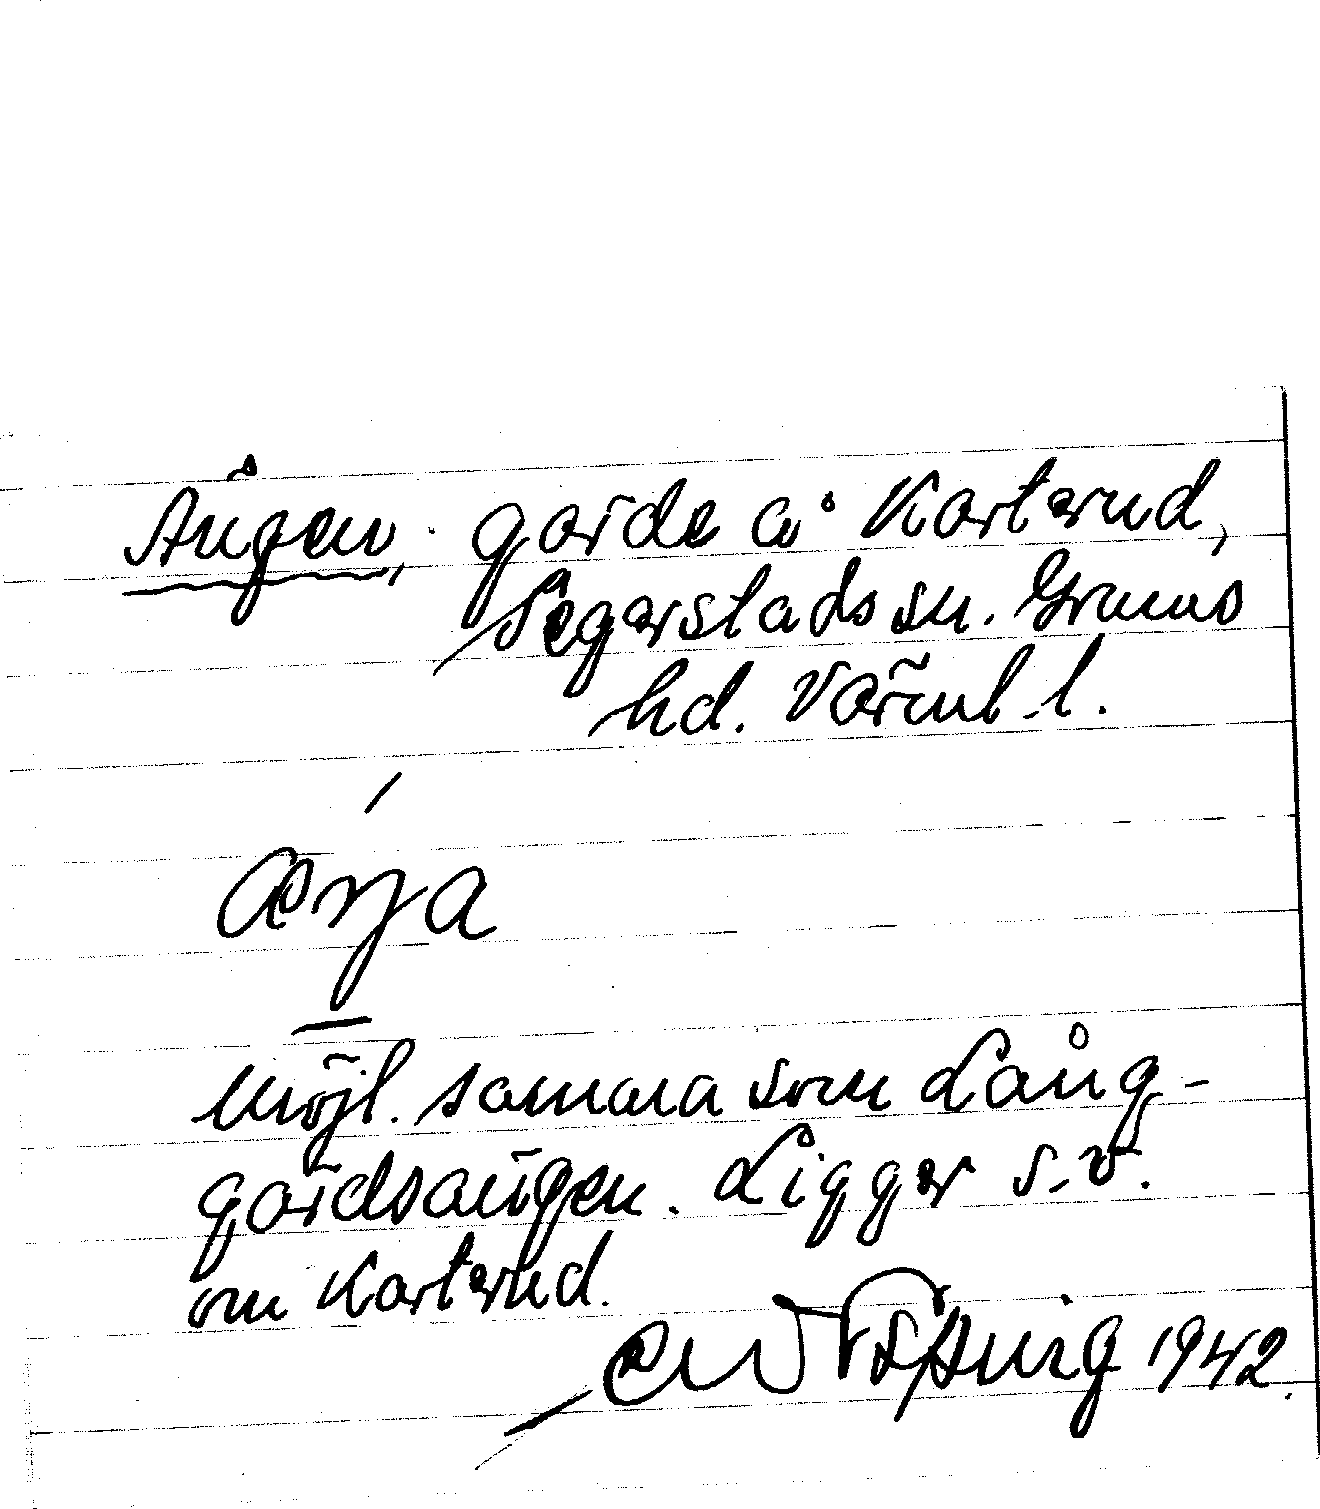 Ängen, gärde å Karterud,
Segerstads sn. Grums
hd. Värml. l.
æŋa
Möjl. samma som Lång-
gärdsängen. Ligger s.v.
om Karterud.
1942.